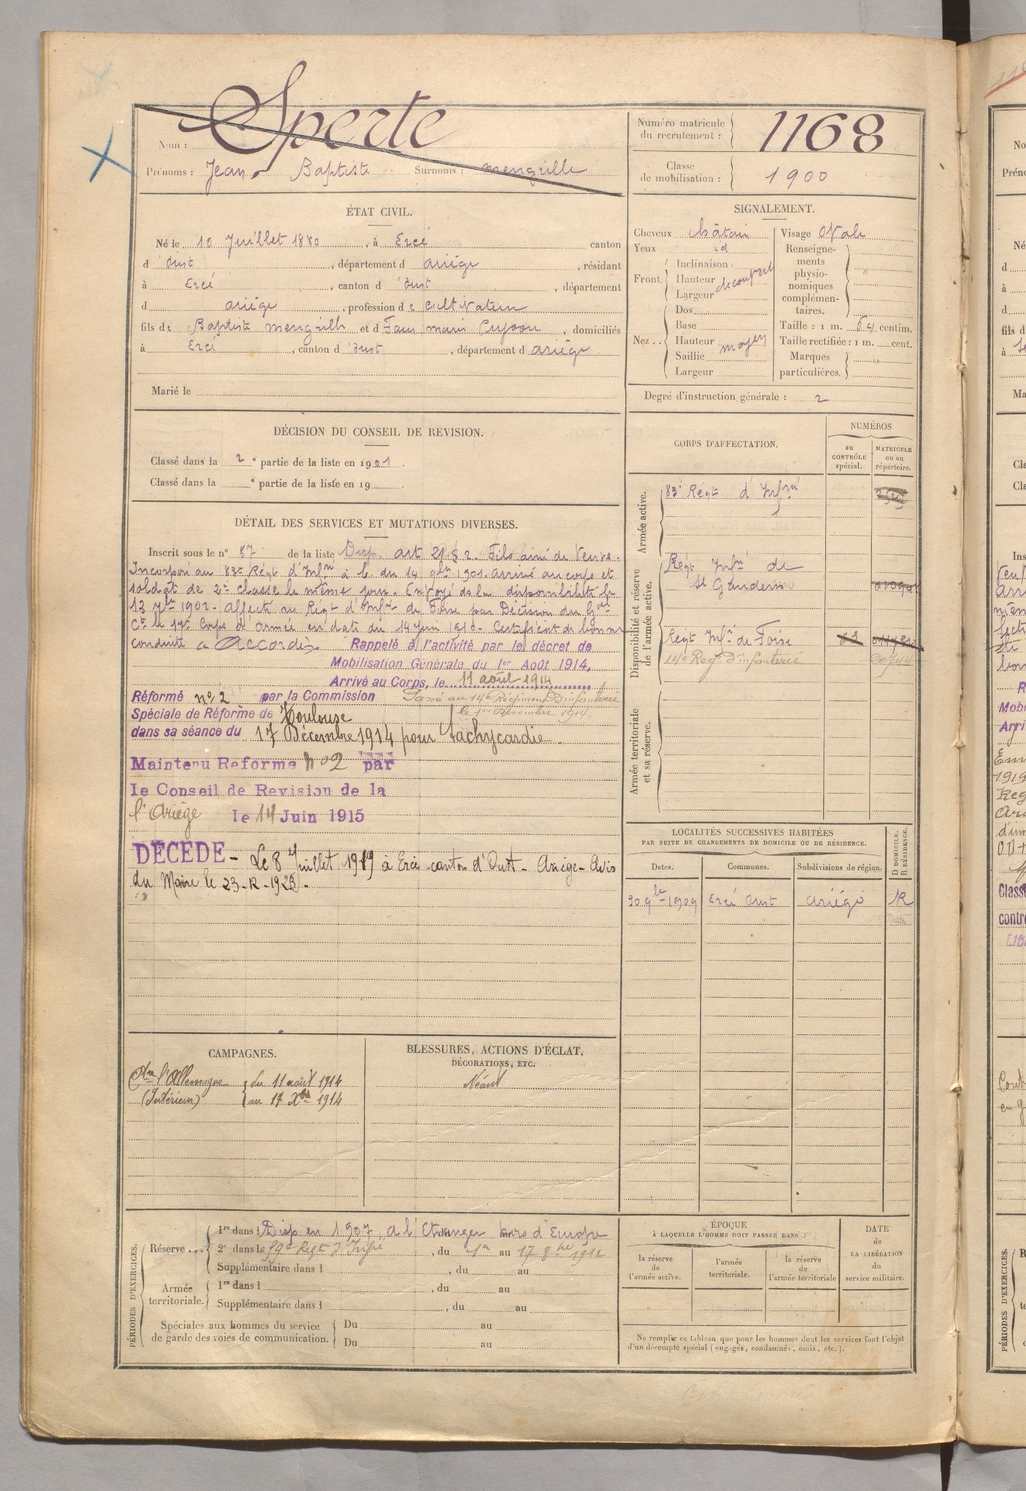 Nom : Sperte
Prénoms : Jean Baptiste Surnoms : mengville
Numéro matricule du recrutement : 1168
Classe de mobilisation : 1900
ÉTAT CIVIL.
Né le 10 Juillet 1880, à Ercé canton
d'Oust, département d ariège, résidant
à Ercé, canton d'Oust, département
d ariège, profession de cultivateur
fils de Baptiste et d domiciliés
à Ercé, canton d'Oust, département d ariège
Marié le
SIGNALEMENT.
Cheveux châtain
Yeux id
Front. Inclinaison
Hauteur découvert
Largeur
Nez.. Dos
Base
Hauteur moyen
Saillie
Largeur
Visage Ovale
Renseignements physionomiques complémentaires. "
Taille : 1 m. 64 centim.
Taille rectifiée : 1 m. cent.
Marques particulières. "
Degré d'instruction générale : 2
DÉCISION DU CONSEIL DE REVISION.
Classé dans la 2e partie de la liste en 1901.
Classé dans la e partie de la liste en 19
DÉTAIL DES SERVICES ET MUTATIONS DIVERSES.
Inscrit sous le n° 87 de la liste Disp. art 21 § 2. Fils ainé de Veuve.
Incorporé au 83e Régt d'Infrie à c. du 14 9bre 1901. arrivé au corps et
soldat de 2e classe le même jour. Envoyé dans la disponibilité le
1902. Affecté au Régt d'Infie de Foix par Décision du Gal
Ct le 17e Corps d'armée en date du 14 juin 1910. Certificat de bonne
conduite " Accordé
Rappelé à l'activité par le décret de
Mobilisation Générale du 1er Août 1914.
Arrivé au Corps, le 11 aout 1914
Passé au 14e Régiment d'infanterie
le 1er 1914
Réformé n° 2 par la Commission
Spéciale de Réforme de Toulouse
dans sa séance du 17 Décembre 1914 pour Tachycardie.
Maintenu Réformé No 2 par
le Conseil de Revision de la
l'Ariège le 14 Juin 1915
DÉCÉDÉ - Le 8 Juillet 1919 à Ercé canton d'Oust - Ariège - Avis
du Maire le
CORPS D'AFFECTATION.
NUMÉROS
au CONTRÔLE spécial.
MATRICULE ou au répertoire.
Armée active.
83e Régt d'Infrie
Disponibilité et réserve de l'armée active.
Régt Infie de
St Gaudens
Régt Infie de Foix
14e Regt d'infanterie
Armée territoriale et sa réserve.
LOCALITÉS SUCCESSIVES HABITÉES
PAR SUITE DE CHANGEMENTS DE DOMICILE OU DE RÉSIDENCE.
Dates.
Communes.
Subdivisions de région.
D DOMICILE. R RÉSIDENCE.
20 9bre 1909 Ercé Oust ariège R
CAMPAGNES.
Ctre l'Allemagne du 11 août 1914
(Intérieur) au 17 Xbre 1914
BLESSURES, ACTIONS D'ÉCLAT,
DÉCORATIONS, ETC.
Néant
PÉRIODES D'EXERCICES.
Réserve ...
1re dans l Disp en 1907, a l'Etranger hors d'Europe
2e dans le 59e Regt d'Infie, du 1er au 17 8bre 1911
Supplémentaire dans l , du au
Armée territoriale.
1re dans l , du au
Supplémentaire dans l , du au
Spéciales aux hommes du service de garde des voies de communication.
Du au
Du au
ÉPOQUE
À LAQUELLE L'HOMME DOIT PASSER DANS :
la réserve de l'armée active.
l'armée territoriale.
la réserve de l'armée territoriale
DATE de LA LIBÉRATION du service militaire.
Ne remplir ce tableau que pour les hommes dont les services font l'objet
d'un décompte spécial (engagés, condamnés, omis, etc.).